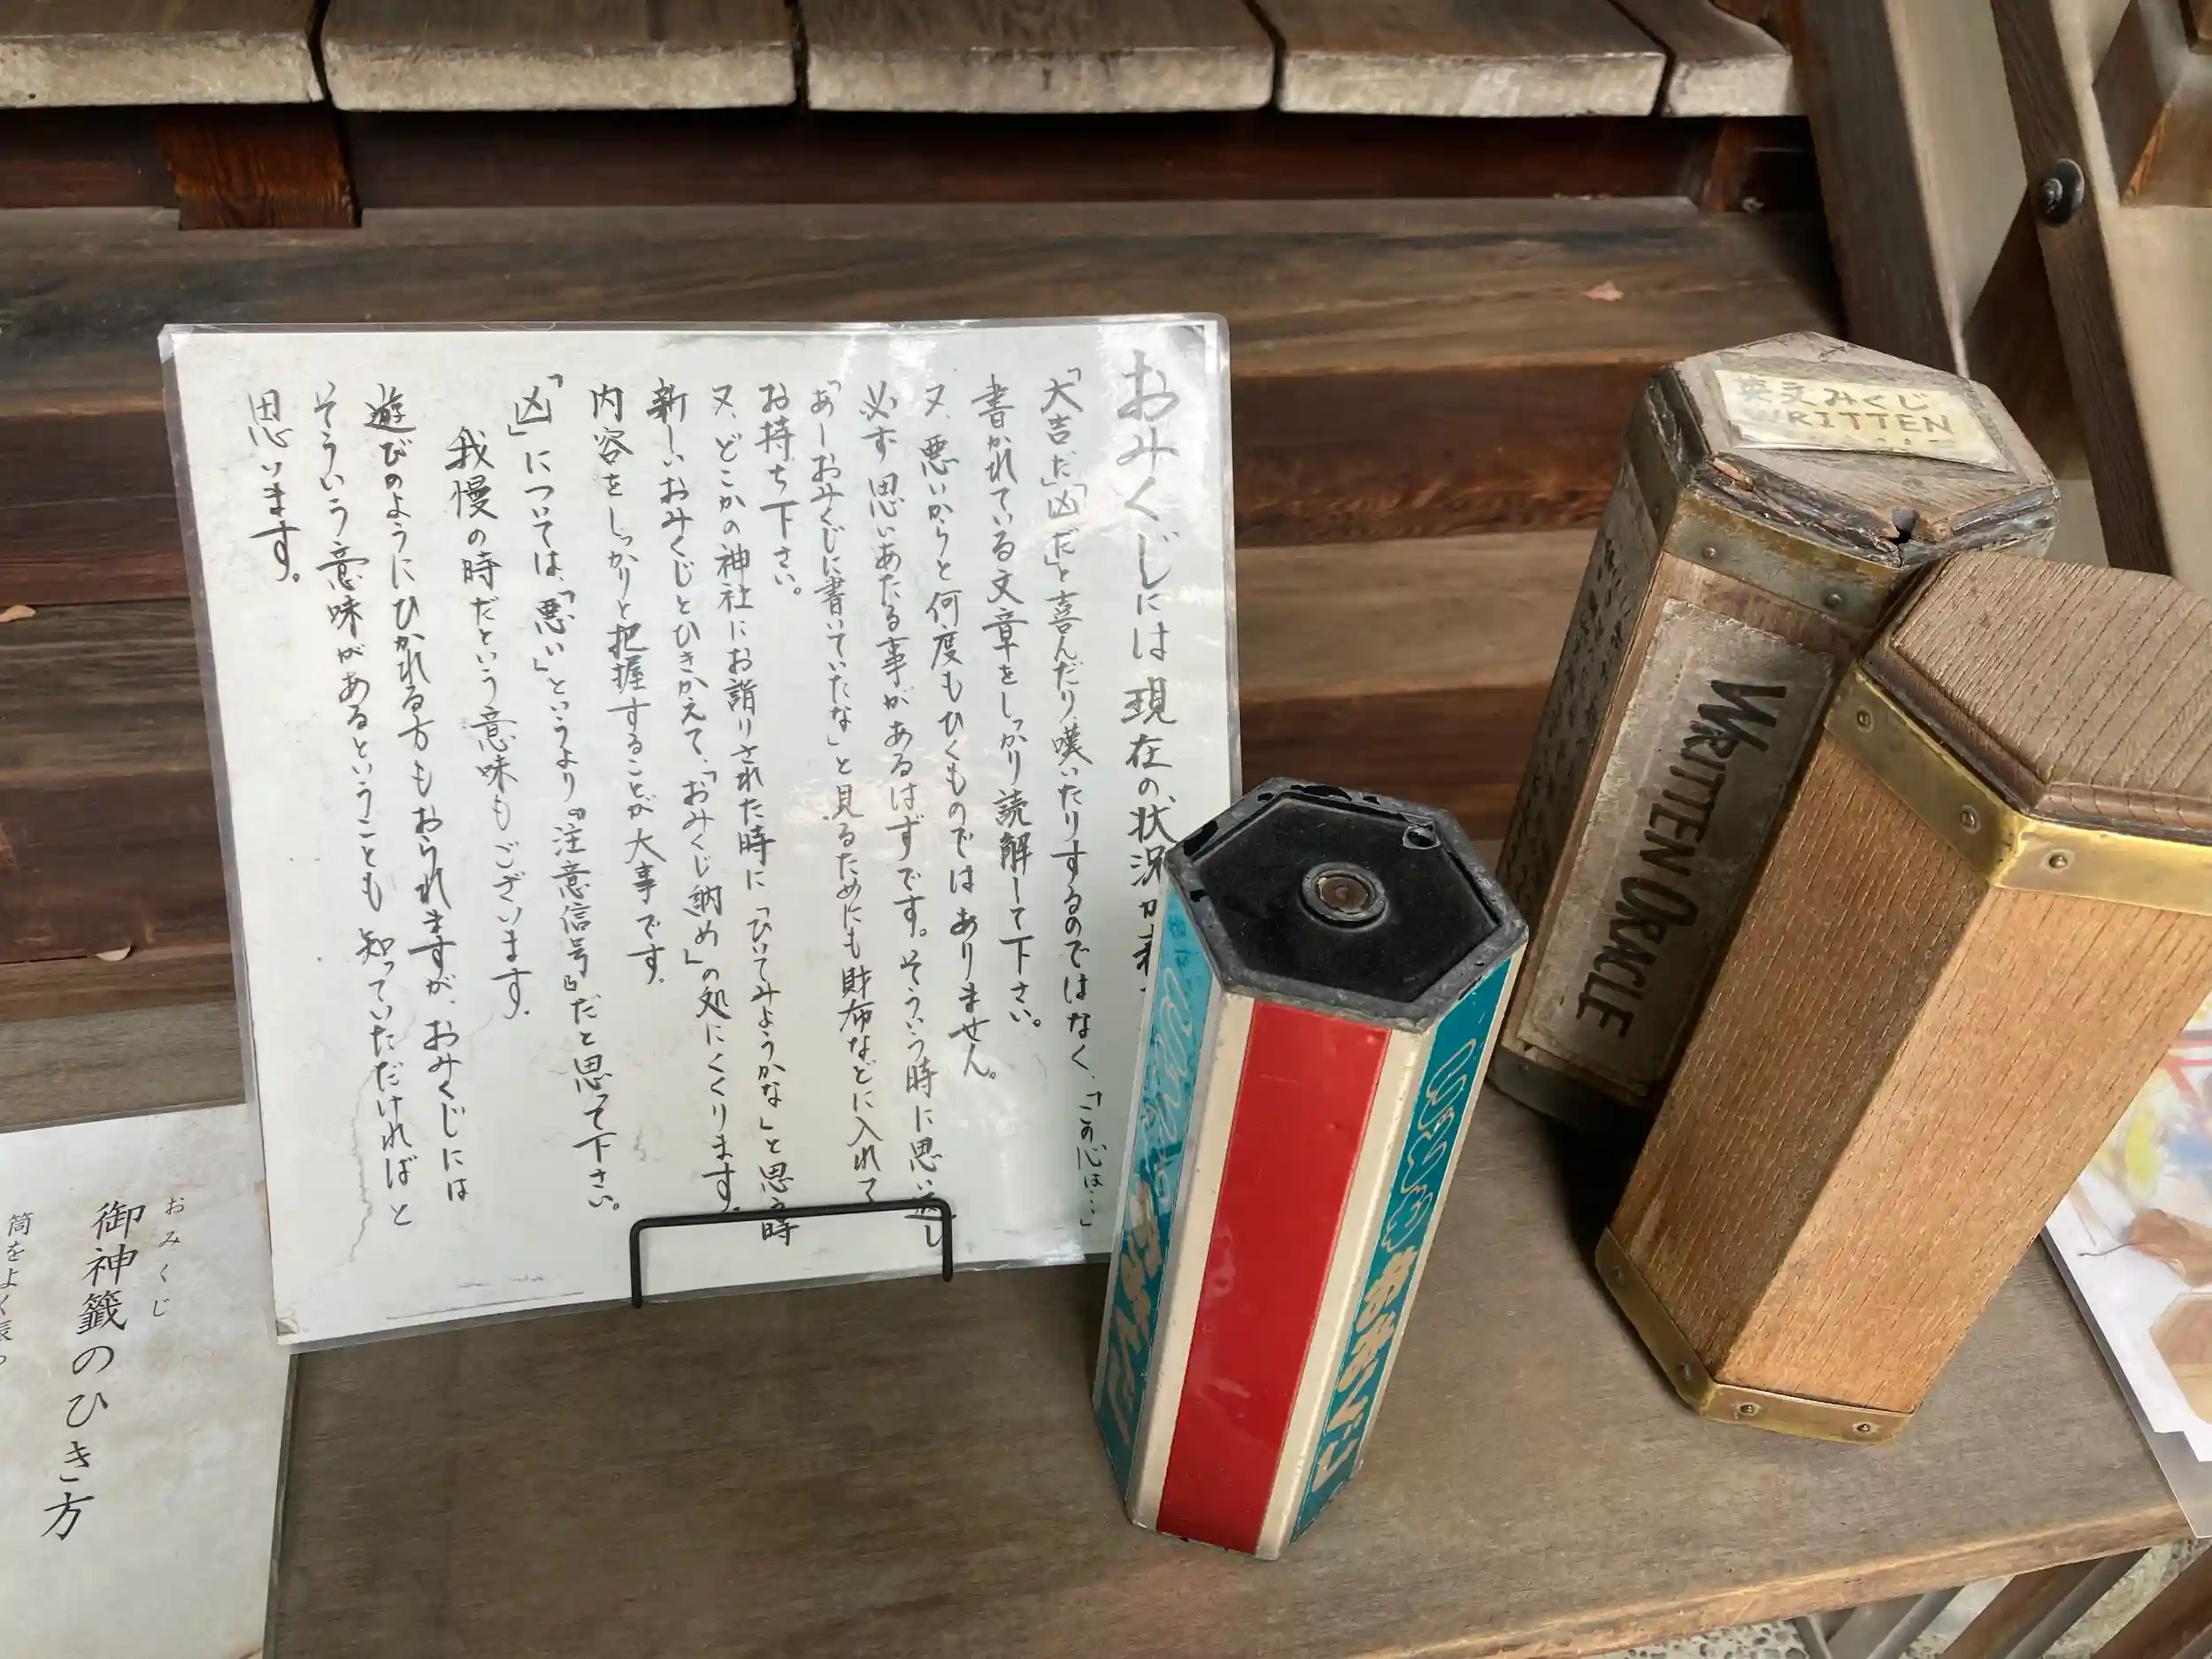 おみくじには現在の状況が表
「大吉だ」「凶だ」と喜んだり、嘆いたりするのではなく、「この心は…」
書かれている文章をしっかり読解して下さい。
又、悪いからと何度もひくものではありません。
必ず思いあたる事があるはずです。そういう時に思い返し
「あーおみくじに書いていたな」と見るためにも財布などに入れて
お持ち下さい。
又、どこかの神社にお詣りされた時に「ひいてみようかな」と思う時
新しいおみくじとひきかえて、「おみくじ納め」の処にくくります。
内容をしっかりと把握することが大事です。
「凶」については、「悪い」というより『注意信号』だと思って下さい。
我慢の時だという意味もございます。
遊びのようにひかれる方もおられますが、おみくじには
そういう意味があるということも知っていただければと
思います。
おみくじ
御神籤のひき方
筒をよく振っ
英文みくじ
WRITTEN
WRITTEN ORACLE